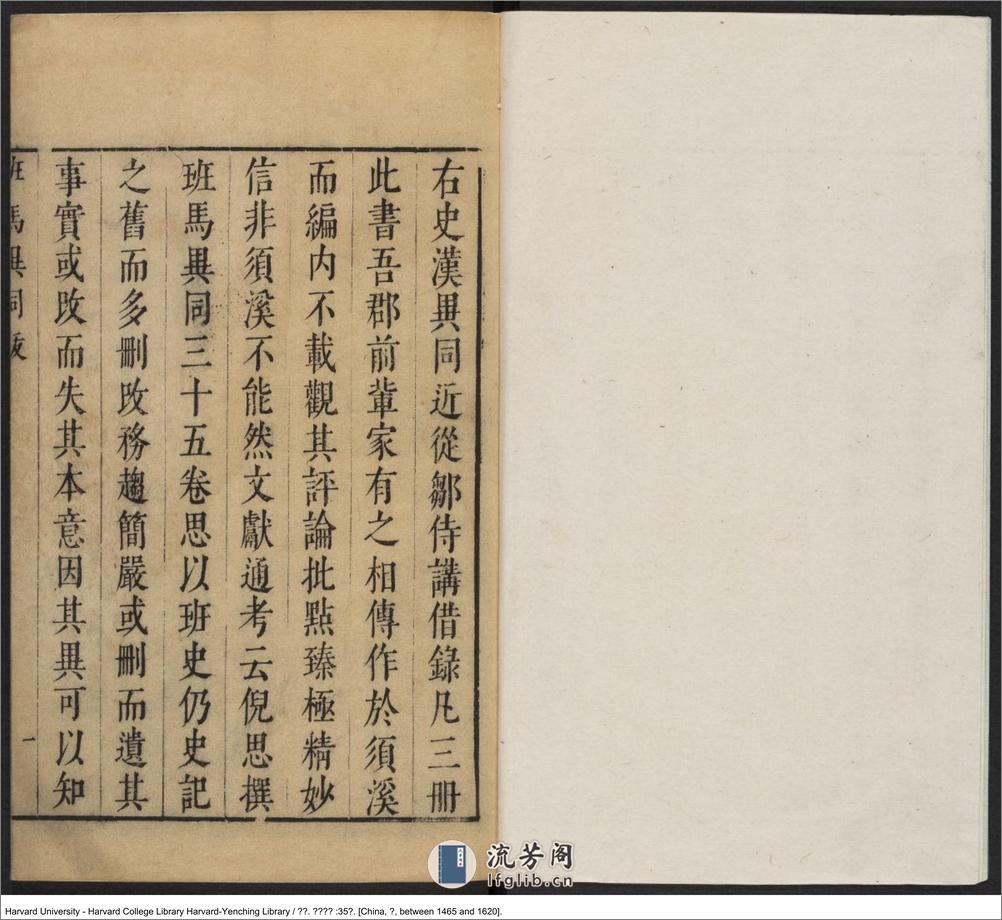 右史漢異同近從鄒侍講借錄凡三冊
此書吾郡前輩家有之相傳作於須溪
而編内不載觀其評論批點臻極精妙
信非須溪不能然文獻通考云倪思撰
班馬異同三十五卷思以班史仍史記
之舊而多刪改務趨簡嚴或刪而遺其
事實或改而失其本意因其異可以知
班馬異同跋
一
流芳阁
lfglib.cn
Harvard University - Harvard College Library Harvard-Yenching Library / ??. ???? :35?. [China, ?, between 1465 and 1620].